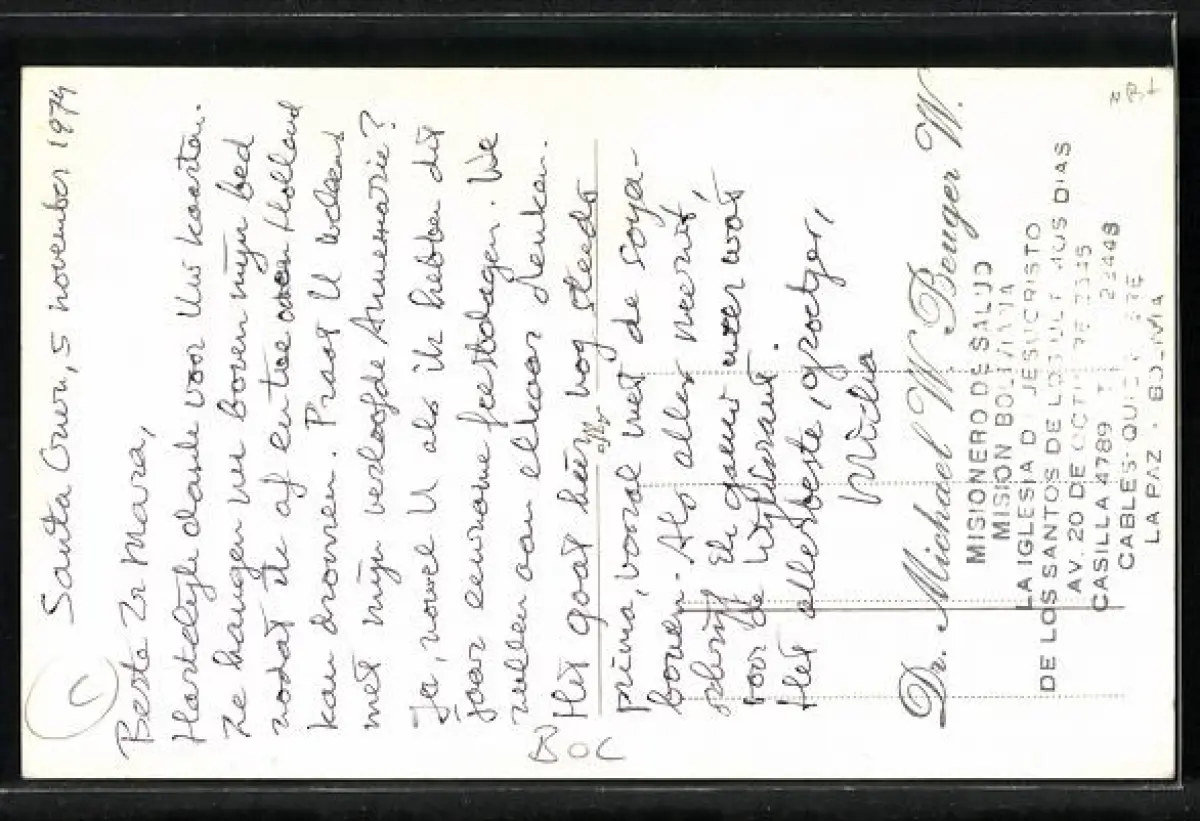 Santa Cruz, 5 november 1974
Beste Zr Mara,
Hartelijk dank voor Uw kaarten.
Ze hangen nu boven mijn bed
zodat ik af en toe over Holland
kan dromen. Praat U weleens
met mijn verloofde Annemarie?
Ja, zowel U als ik hebben dit
jaar eenzame feestdagen. We
zullen aan elkaar denken.
Het gaat hier nog steeds
prima, vooral met de soya-
bonen. Als alles meezit,
schrijf ik gauw weer wat
voor de
Het allerbeste, groetjes,
Micha
Dr. Michael W. Benger W.
MISIONERO DE SALUD
MISION BOLIVIANA
LA IGLESIA D JESUCRISTO
DE LOS SANTOS DE LOS DIAS
AV. 20 DE
CASILLA 4789
CABLES
LA PAZ - BOLIVIA
BOC